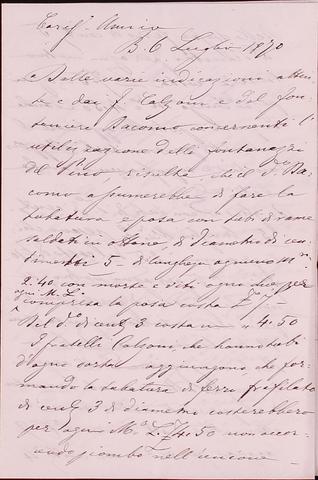 Caris.º Amico
B. 6 Luglio 1870
Dalle varie indicazioni atten
te e dai f. Calzoni e dal fon
taniere Bacomo concernenti l'
utilizzazione della fontana
del Pino, risulta, che il dº Ba
como assumerebbe di fare la
tubatura e posa con tubi di rame
saldati in ottone, di diametro di cen
timetri 5 - di lunghezza ognuno Mⁿ.
2.40 con morse e viti ogni due, per
ogni M. L.
compresa la posa costa £ 7 -
Del dº di cent 3 costa " 4.50
I fratelli Calzoni, che hanno tubi
d'ogni sorta aggiungono che for
mando la tubatura di ferro trafilato
di cent 3 di diametro costerebbero
per ogni Mº L. £ 4.50 non occor
rendo piombo nell'unione